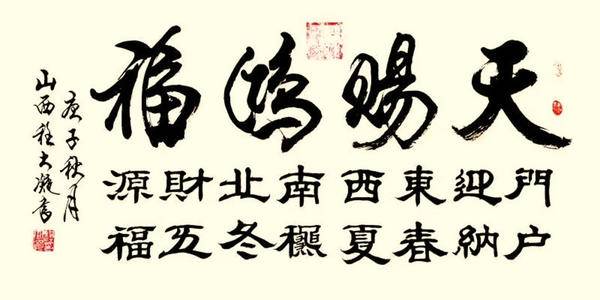 天賜鴻福
門迎東西南北財源
户納春夏龝冬五福
庚子秋月
山西程大凝書